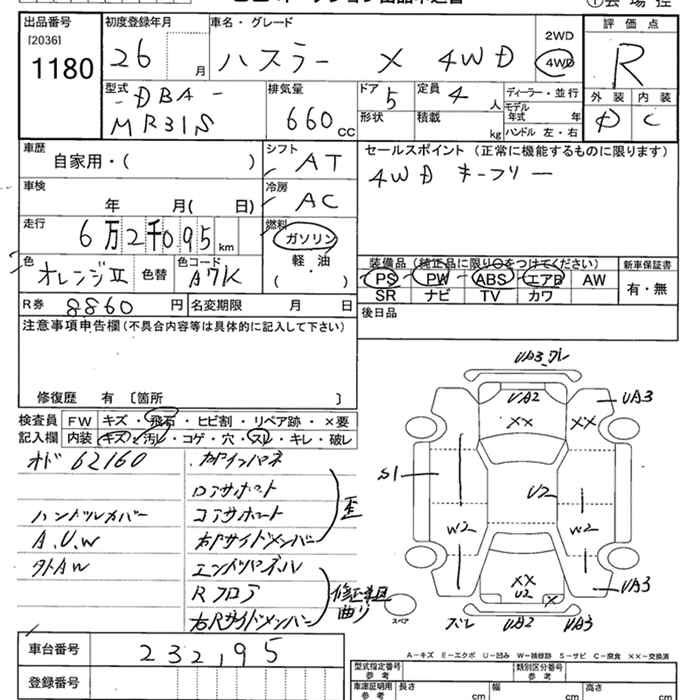 出品番号 初度登録年月 車名・グレード 評価点
[2036]
1180
26 月 ハスラー X 4WD 2WD 4WD R
型式 排気量 ドア 定員 ディーラー・並行 外装 内装
DBA- 5 4 人 モデル年式 年 D C
MR31S 660 CC 形状 積載 kg ハンドル 左・右
車歴 シフト セールスポイント (正常に機能するものに限ります)
自家用・( ) AT 4WD キーフリー
車検 冷房
年 月( 日) AC
走行 燃料
6万2千095 km ガソリン
色 色コード 軽・油 装備品 (純正品に限り○をつけてください) 新車保証書
オレンジII 色替 A7K ( ) PS PW ABS エアB AW 有・無
SR ナビ TV カワ
R券 8860 円 名変期限 月 日 後日品
注意事項申告欄 (不具合内容等は具体的に記入して下さい)
修復歴 有 [箇所 ]
検査員 FW キズ・飛石・ヒビ割・リペア跡・×要
記入欄 内装 キズ・汚レ・コゲ・穴・スレ・キレ・破レ
オド 62160
ハンドルカバー
A.U.W
タトAW
右Fインパネ
ロアサポート
コアサポート
右Fサイドメンバー
歪
エンドパネル
Rフロア
右Rサイドメンバー
修正歪
曲り
UA3 ズレ
UA2
XX
XX
UA3
S1
U2
W2
W2
XX
U2
X
UA3
スペア
ズレ UA2 UA3
車台番号 232195
登録番号
A-キズ E-エクボ U-凹み W-補修跡 S-サビ C-腐食 ××-交換済
型式指定番号 参考 類別区分番号 参考
車庫証明用 参考 長さ cm 幅 cm 高さ cm